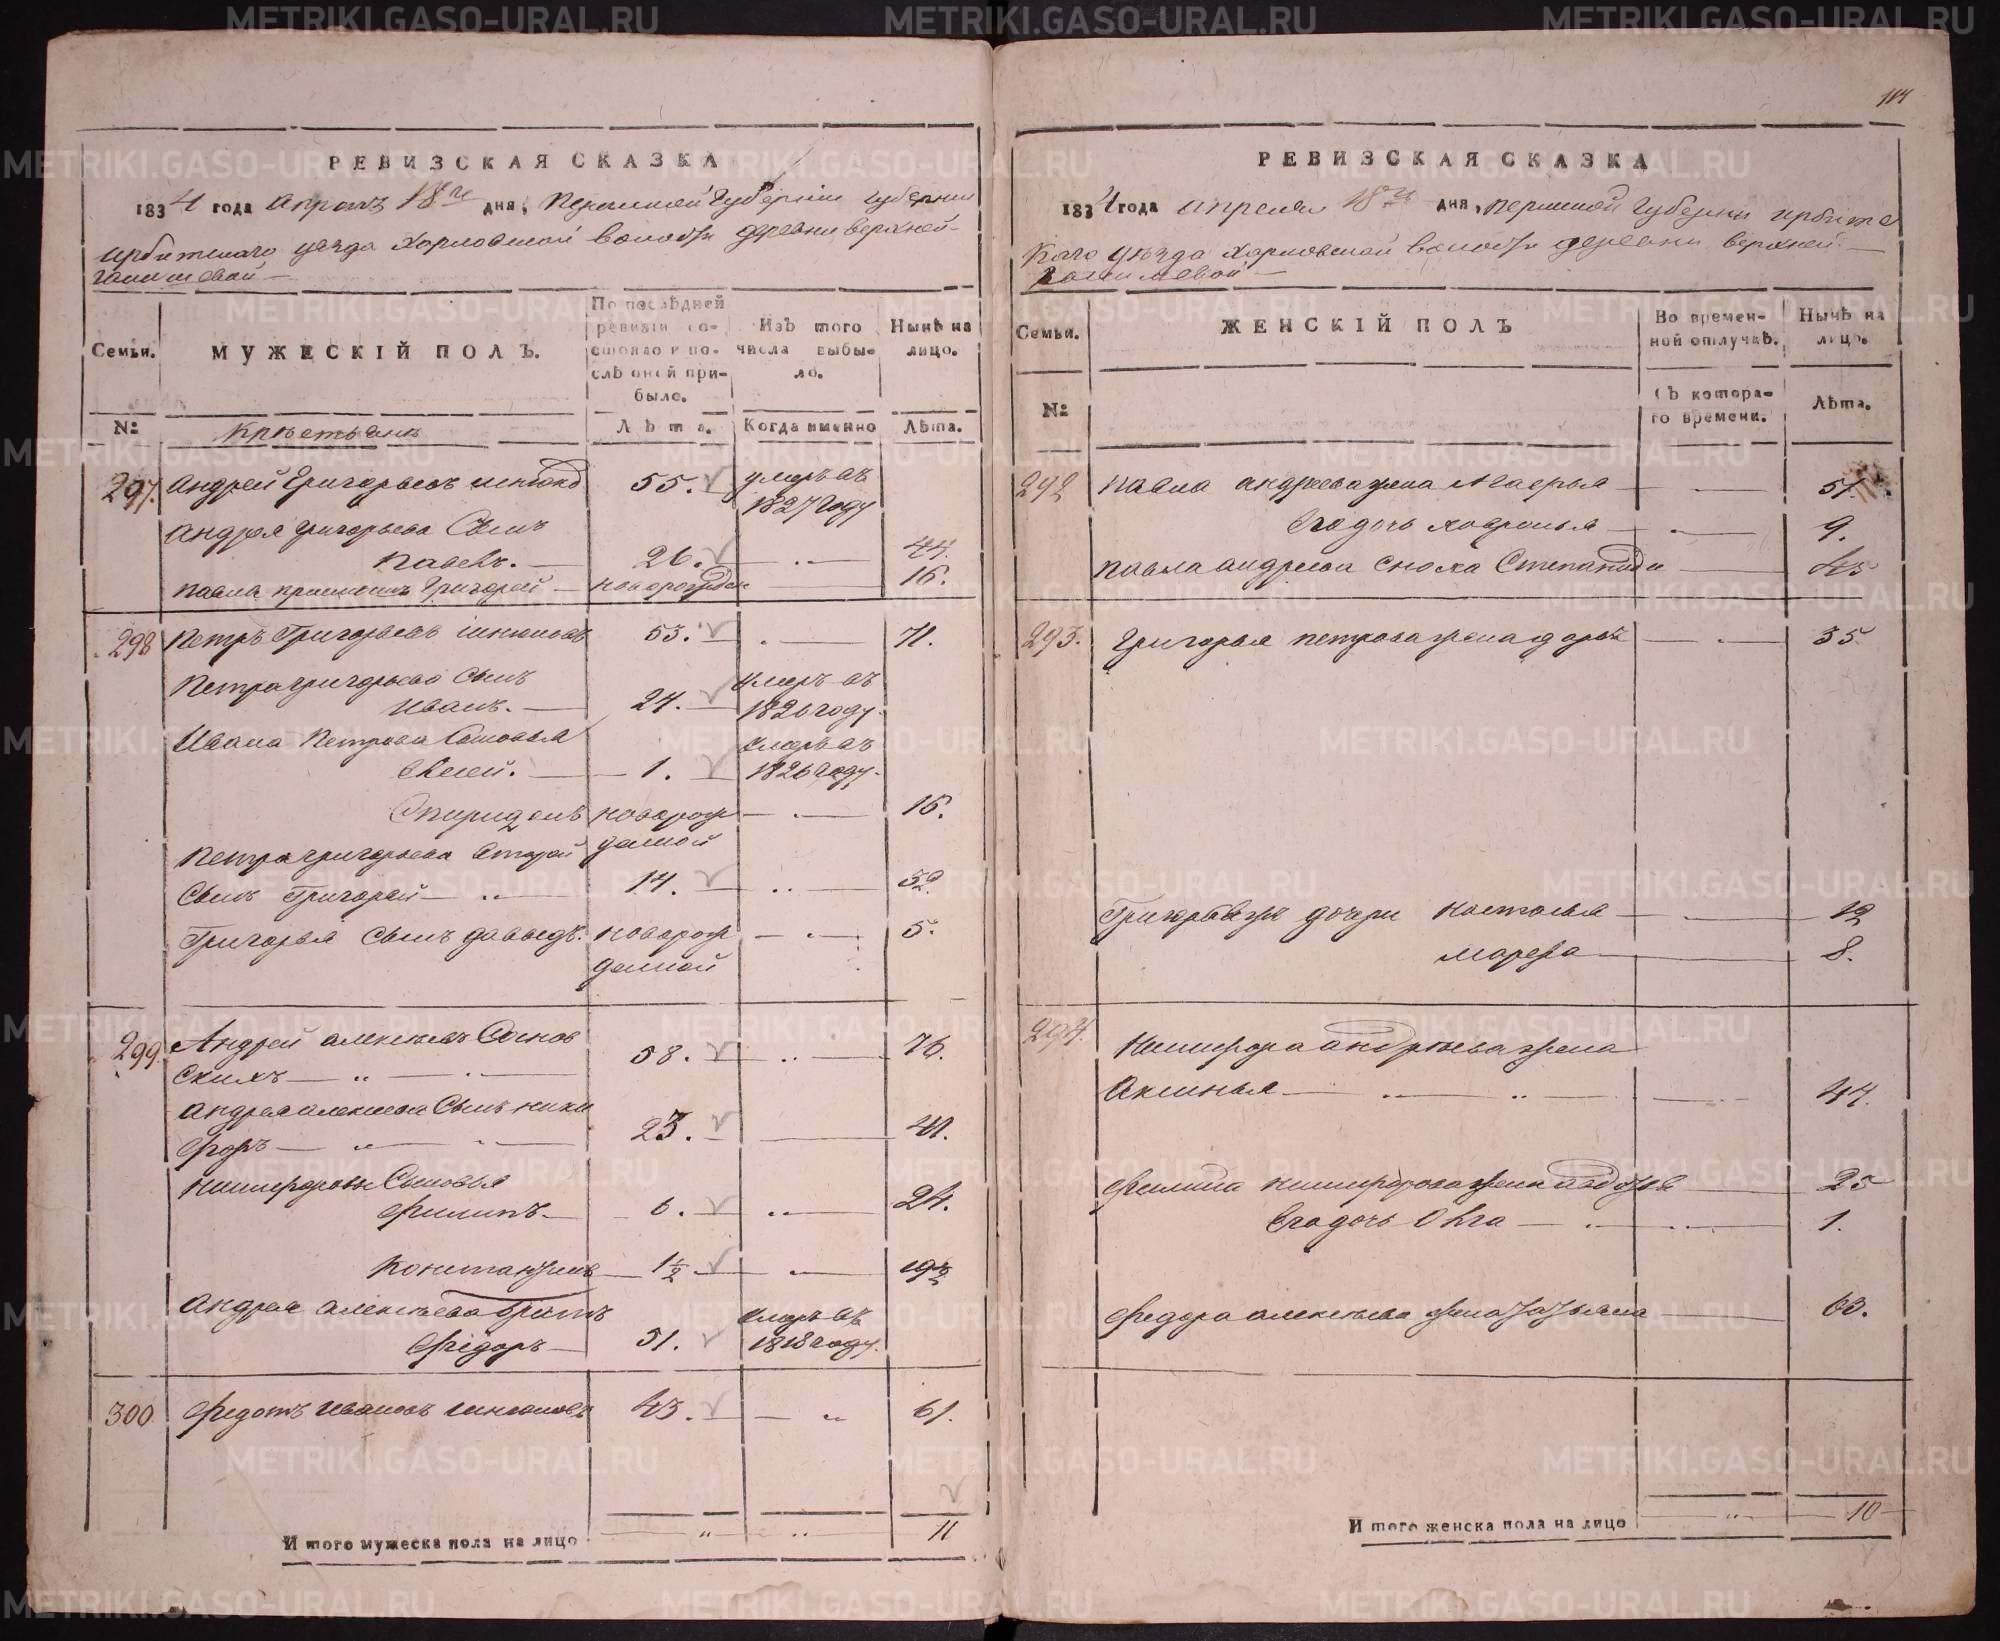 114
РЕВИЗСКАЯ СКАЗКА
1834 года апреля 18го дня, Пермской Губернии губернии
ирбитскаго уезда Харловской волости деревни верхней-
РЕВИЗСКАЯ СКАЗКА
1834 года апреля 18го дня, пермской Губернии ирбитс
каго уѣзда Харловской волости деревни верхней
Семьи.
МУЖЕСКІЙ ПОЛЪ.
По послѣдней ревизіи состояло и послѣ оной прибыло.
Изъ того числа выбыло.
Нынѣ на лицо.
№
Крестьяне
Лѣта.
Когда именно
Лѣта.
297. Андрей Григорьевъ 55. умеръ въ 1827 году
Андрея Григорьева Сынъ
Павелъ. 26. 44.
Павла Григорей новорожден 16.
298 Петръ Григорьевъ 53. 71.
Петра григорьева Сынъ
Иванъ. 24. умеръ въ 1826 году.
Ивана Петрова Сыновья
1. умеръ въ 1826 году.
Спиридонъ новорож 16.
Петра григорьева второй данной
Сынъ Григорей 14. 32.
Григорья Сынъ давыдъ. новорож 5.
данной
299. Андрей алексеевъ Соснов
скихъ 58. 76.
андрея алексеева Сынъ ники
форъ 23. 41.
Никифоровы Сыновья
Филипъ. 6. 24.
Константинъ 1½ 19½
Андрея алексѣева братъ
Фёдоръ 51. умеръ въ 1818 году.
300. Федотъ Ивановъ 43. 61.
Итого мужеска пола на лицо 11
Семьи.
ЖЕНСКІЙ ПОЛЪ
Во временной отлучкѣ.
Нынѣ на лицо.
№
Съ котораго времени.
Лѣта.
292 Павла андреева жена 51.
Егодочь ховронья 9.
Павла андреева сноха Степанида 45
293. Григорья петрова жена 35.
дочери настасья 12
марфа 8.
294. Никифора андреева жена
Аксинья 47.
Филипа никифорова жена Федосья 25
Егодочь Олга 1.
Федора алексѣева жена татьяна 63.
Итого женска пола на лицо 10
METRIKI.GASO-URAL.RU